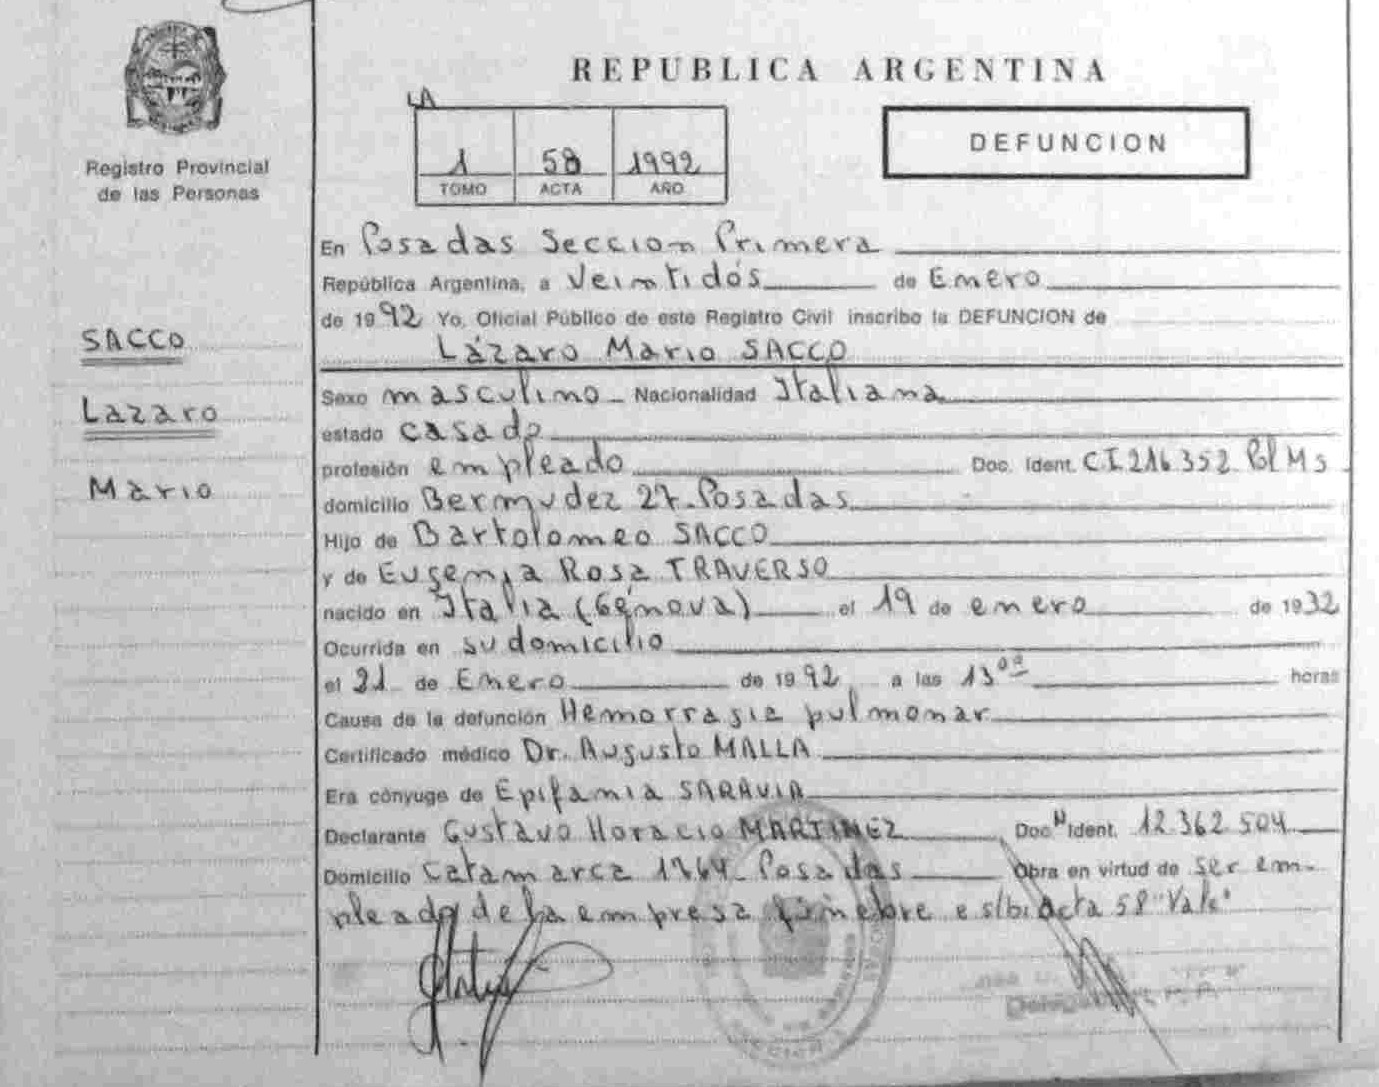 REPUBLICA ARGENTINA
LA
1 58 1992
TOMO ACTA AÑO
DEFUNCION
Registro Provincial
de las Personas
SACCO
Lazaro
Mario
En Posadas Seccion Primera
República Argentina, a Veintidós de Enero
de 1992 Yo, Oficial Público de este Registro Civil inscribo la DEFUNCION de
Lázaro Mario SACCO
Sexo masculino Nacionalidad Italiana
estado casado
profesión empleado Doc. Ident. C.I. 216.352 Pol Ms
domicilio Bermudez 27 - Posadas
Hijo de Bartolomeo SACCO
y de Eugenia Rosa TRAVERSO
nacido en Italia (Génova) el 19 de enero de 1932
Ocurrida en su domicilio
el 21 de Enero de 1992 a las 13 00 horas
Causa de la defunción Hemorragia pulmonar
Certificado médico Dr. Augusto MALLA
Era cónyuge de Epifania SARAVIA
Declarante Gustavo Horacio MARTINEZ Doc. N Ident. 12.362.504
Domicilio Catamarca 1764 - Posadas Obra en virtud de ser em-
pleado de la empresa fúnebre e s/b: acta 58 "Vale"